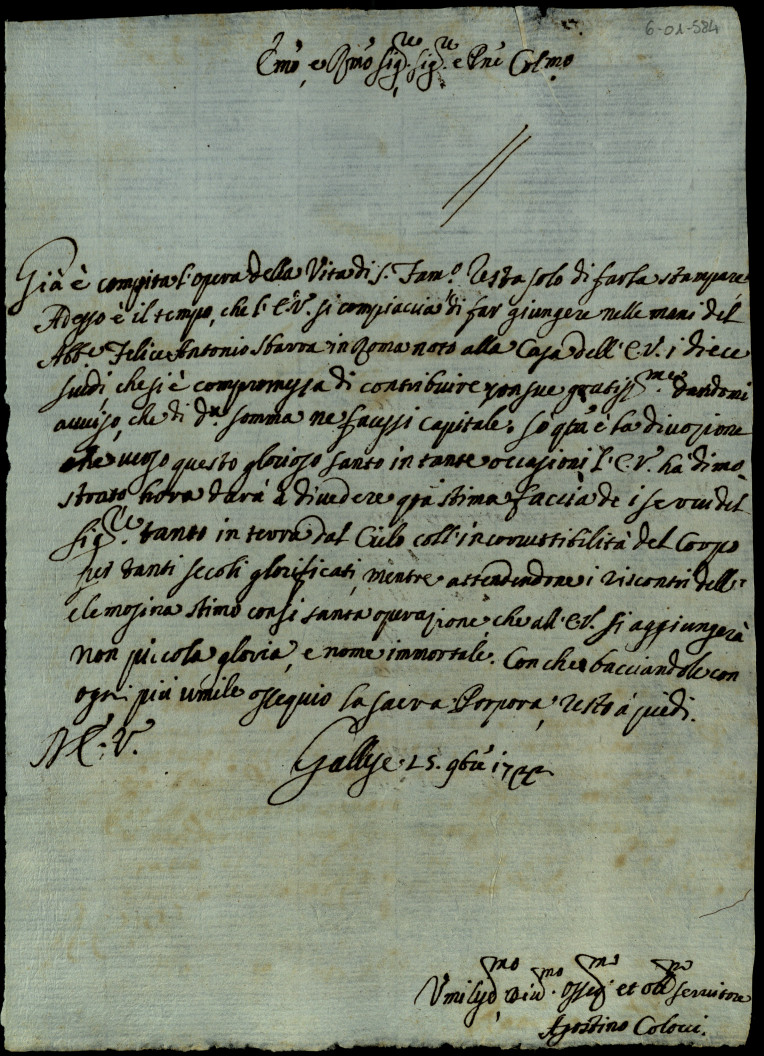 6-01-584
Emo, e Rmo Sig.re Sig.re e Pne Colmo
Già è compita l'opera della Vita di S. Fam.o Resta solo di farla stampare
Adesso è il tempo, che l'E.V. si compiaccia di far giungere nelle mani del
Abb.e Felice Antonio Sbarra in Roma noto alla Casa dell'E.V. i diece
scudi, che si è compromessa di contribuire con sue gratiss.me dandomi
avviso, che di d.a somma ne facessi capitale. So qta è la divozione
che verso questo glorioso Santo in tante occasioni l'E.V. hà dimo
strato hora darà à divedere qta stima faccia de i servi del
Sig.re tanto in terra dal Cielo coll'incorruttibilità del Corpo
per tanti secoli glorificati, mentre attendendone i riscontri dell'
elemosina stimo con si santa operazione, che all'E.V. si aggiungerà
non piccola gloria, e nome immortale. Con che bacciandole con
ogni più umile ossequio la sacra Porpora, resto à piedi.
D.E.V.
Gallese 25. 9bre
Umiliss.mo Div.mo Osseq.mo et obl.mo servitore
Agostino Colocci.